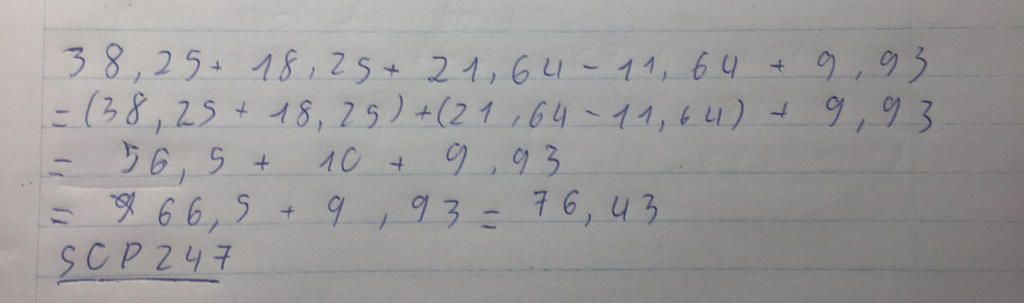 38,25 + 18,25 + 21,64 - 11,64 + 9,93
= (38,25 + 18,25) + (21,64 - 11,64) + 9,93
= 56,5 + 10 + 9,93
= 66,5 + 9,93 = 76,43
SCP247